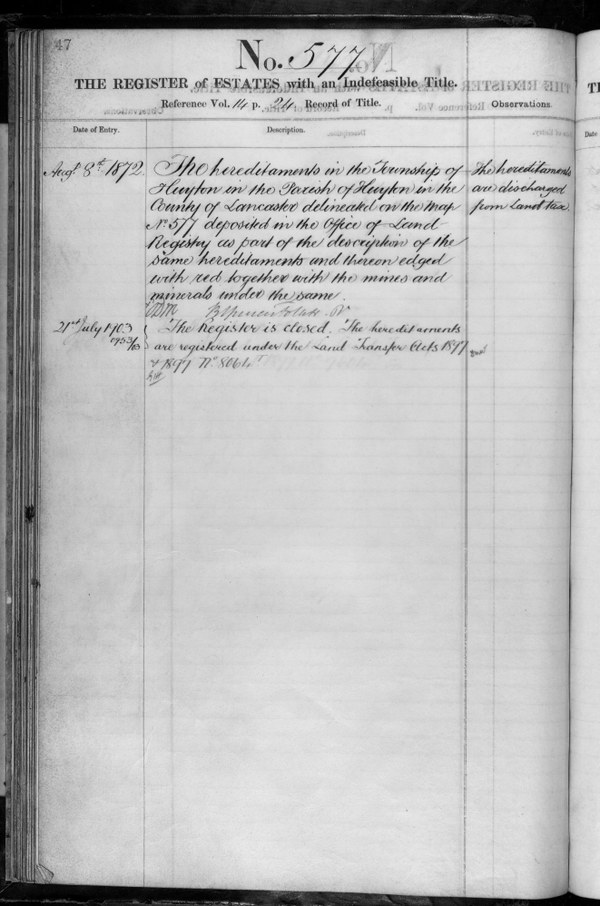 47
No. 577
THE REGISTER of ESTATES with an Indefeasible Title.
Reference Vol. 14 p. 24 Record of Title.
Observations.
Date of Entry.
Description.
Augt. 8th. 1872.
The hereditaments in the Township of
Huyton in the Parish of Huyton in the
County of Lancaster delineated on the Map
No. 577 deposited in the Office of Land
Registry as part of the description of the
same hereditaments and thereon edged
with red together with the mines and
minerals under the same.
The hereditaments
are discharged
from Land tax.
21st July 1903
The Register is closed. The hereditaments
are registered under the Land Transfer Acts 1897
& 1897 No. 8064